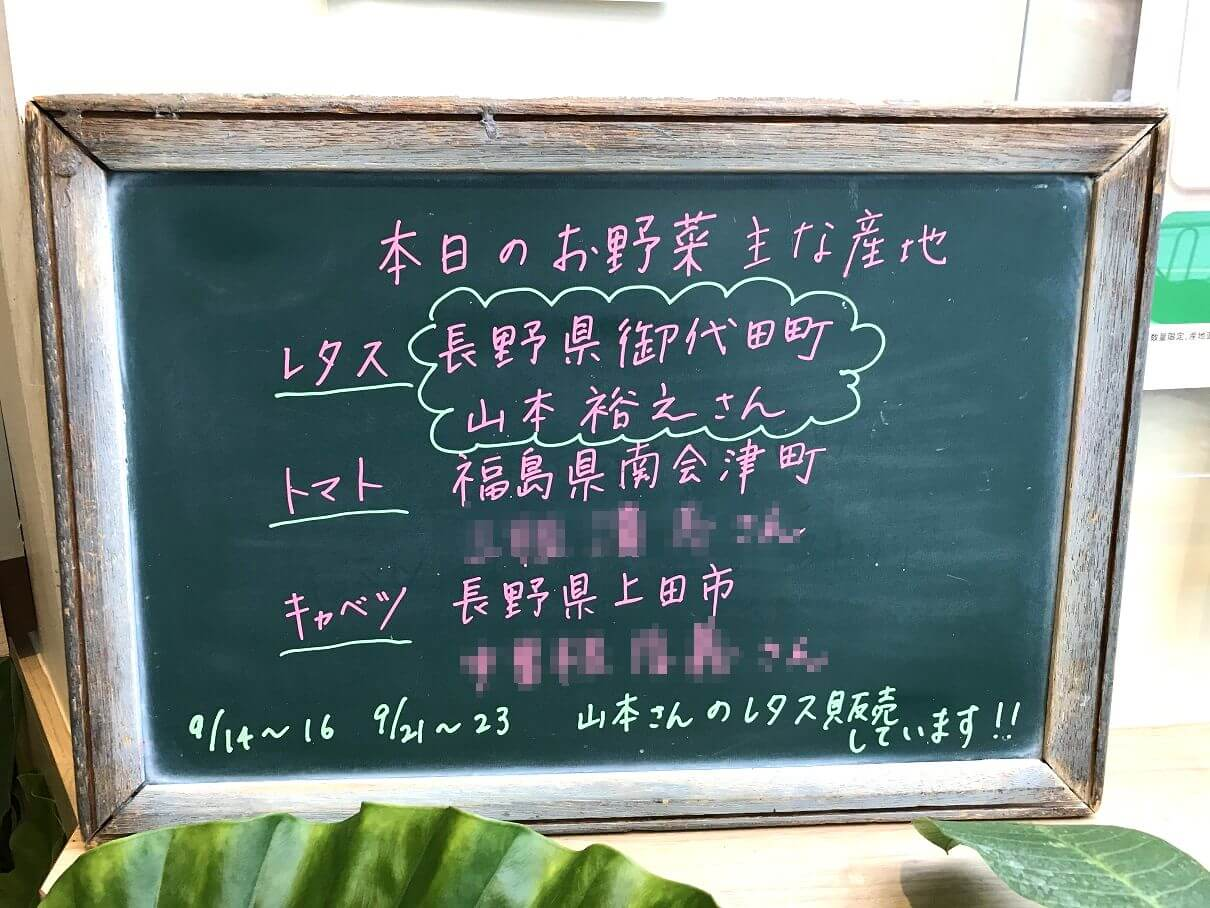 本日のお野菜 主な産地
レタス 長野県御代田町
山本 裕之さん
トマト 福島県南会津町
さん
キャベツ 長野県上田市
さん
9/14～16 9/21～23 山本さんのレタス販売
しています!!
数量限定、産地